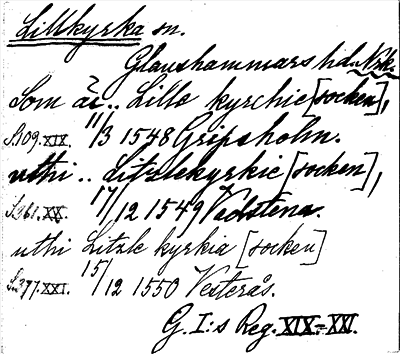 Lillkyrka sn.
Glanshammars hd. Nrk.
Som är .. Lille kyrchie [socken],
S.109.XIX. 11/3 1548 Gripsholm.
uthi .. Litzlekyrkie [socken],
S.361.XX. 17/12 1549 Vadstena.
uthi Litzle kyrkia [socken]
S.377.XXI. 15/12 1550 Vesterås.
G. I:s Reg. XIX-XXI.